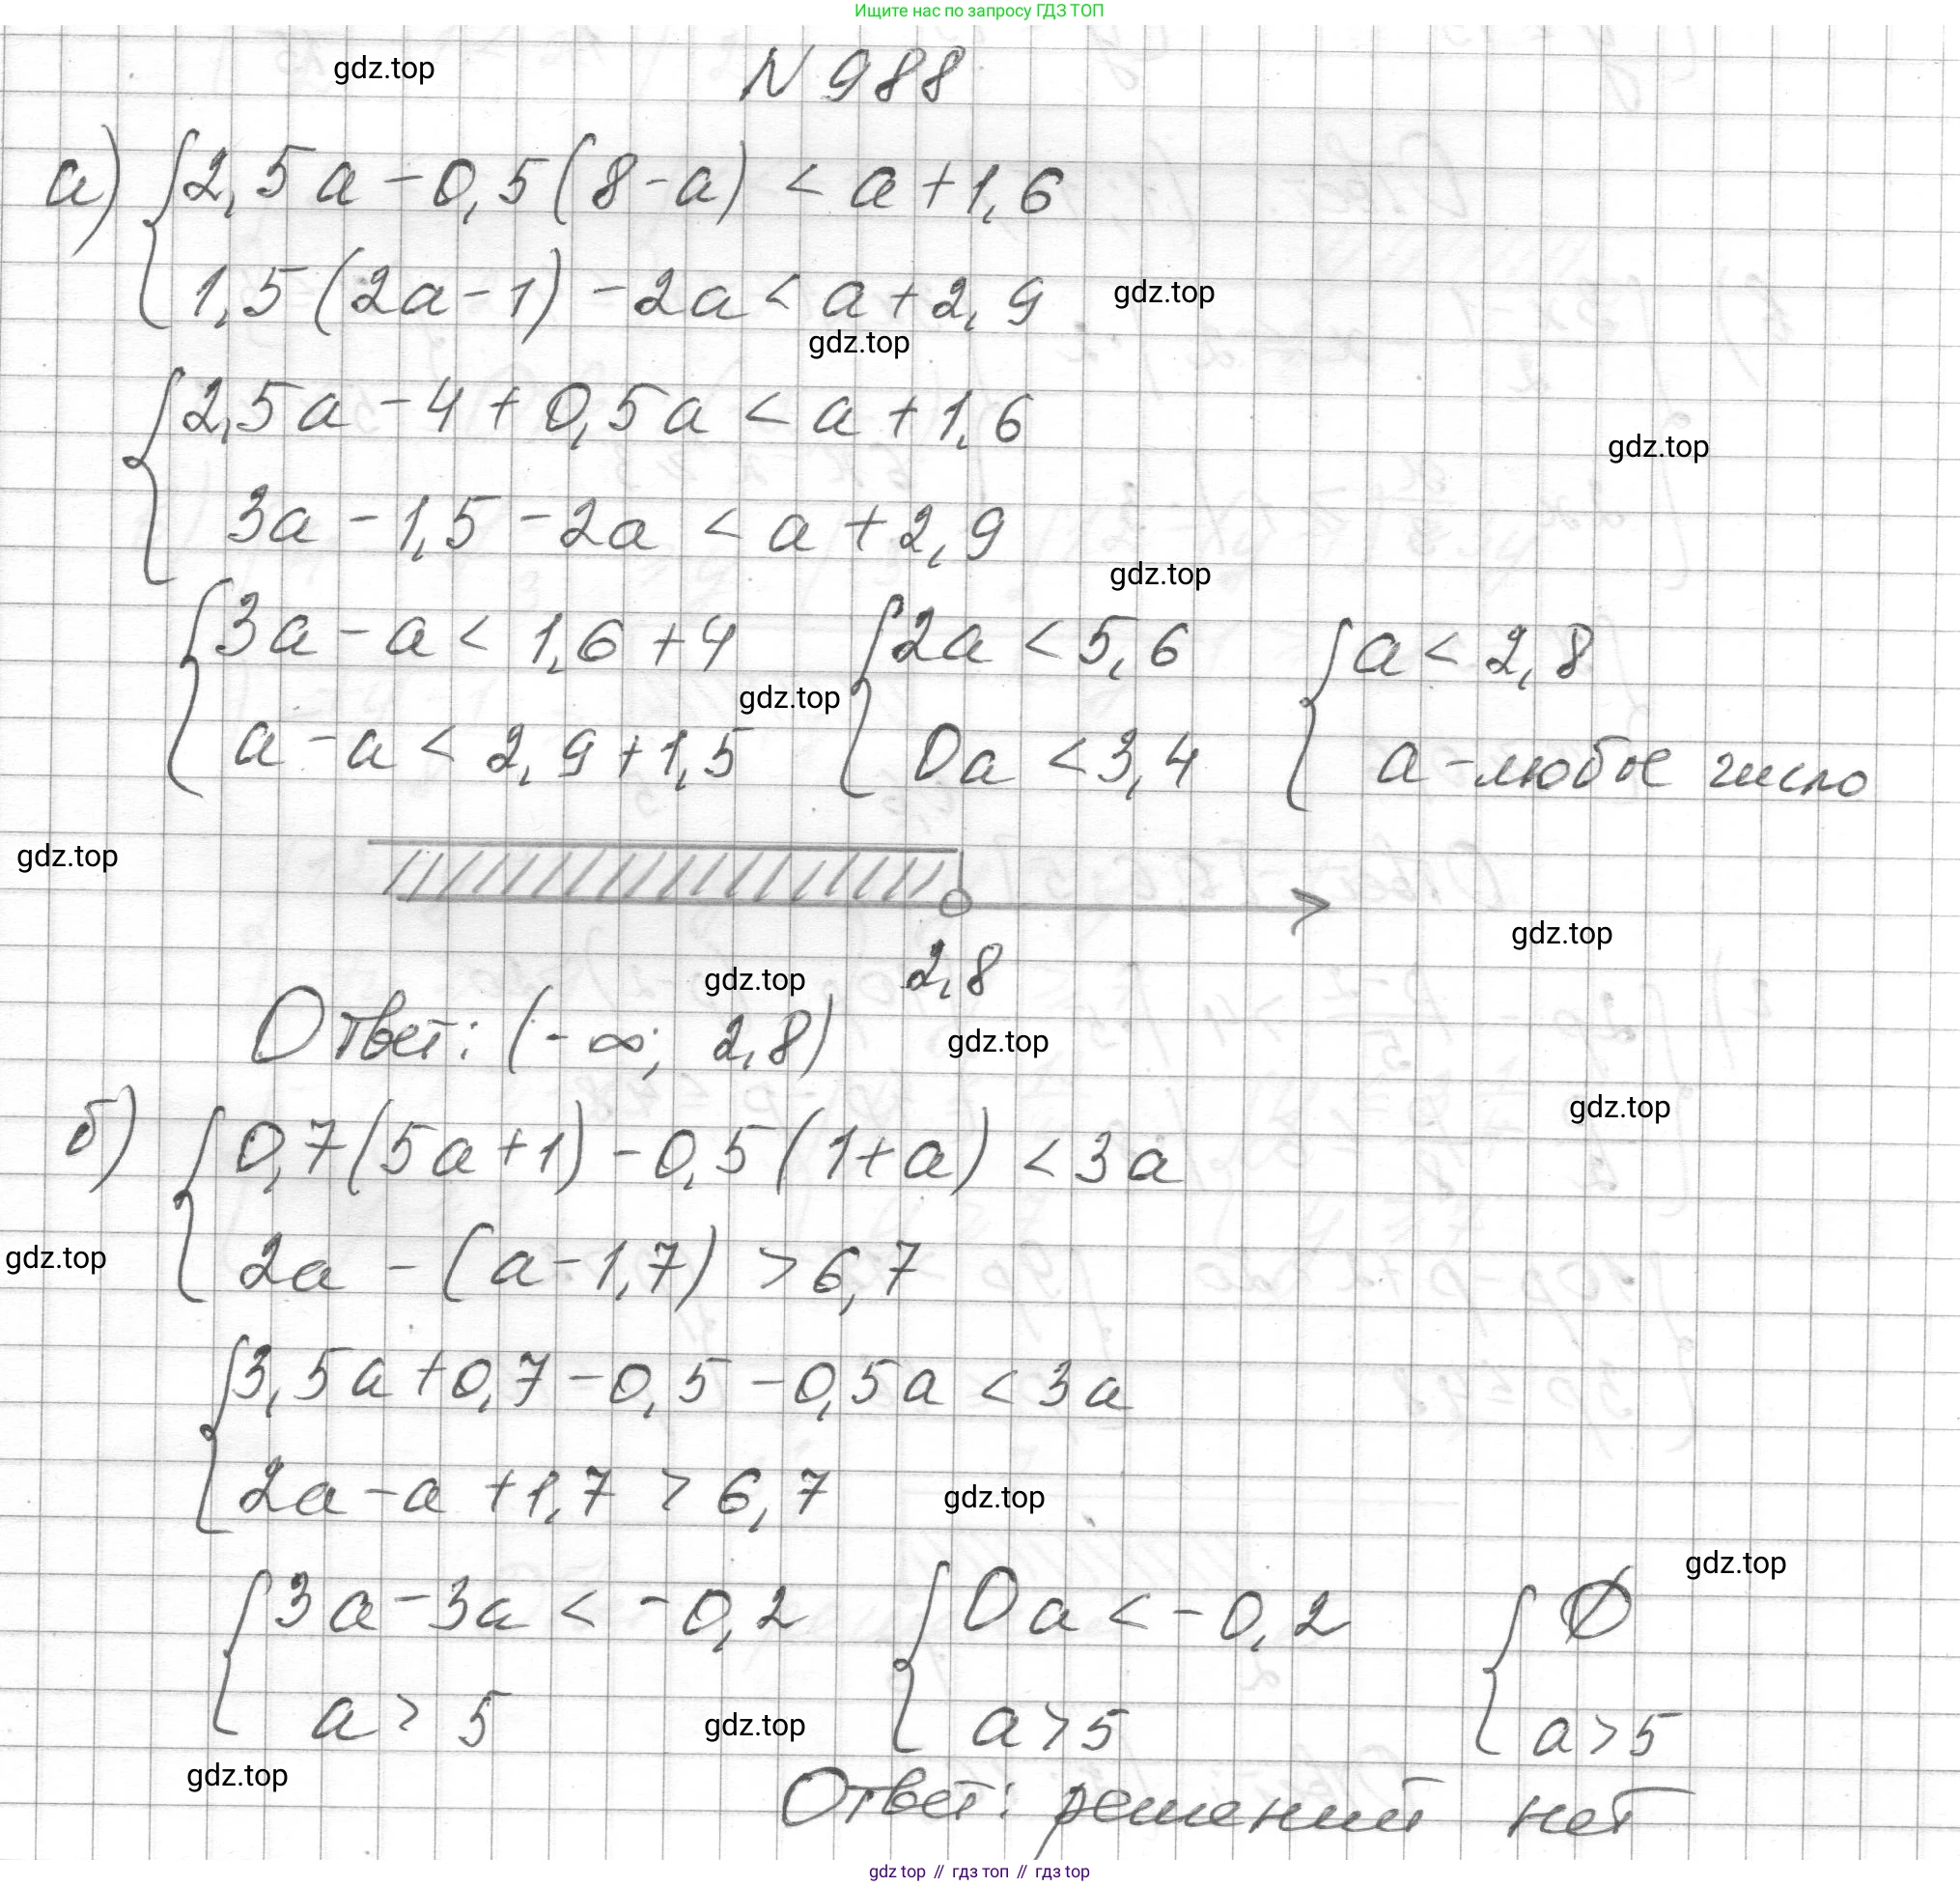 Ищите нас по запросу ГДЗ ТОП
gdz.top
N 988
а) { 2,5a - 0,5(8 - a) < a + 1,6
1,5(2a - 1) - 2a < a + 2,9
gdz.top
gdz.top
{ 2,5a - 4 + 0,5a < a + 1,6
gdz.top
3a - 1,5 - 2a < a + 2,9
gdz.top
{ 3a - a < 1,6 + 4 { 2a < 5,6 { a < 2,8
gdz.top
a - a < 2,9 + 1,5 0a < 3,4 a - любое число
gdz.top
gdz.top
2,8
gdz.top
Ответ: (-∞; 2,8)
gdz.top
gdz.top
б) { 0,7(5a + 1) - 0,5(1 + a) < 3a
2a - (a - 1,7) > 6,7
gdz.top
{ 3,5a + 0,7 - 0,5 - 0,5a < 3a
2a - a + 1,7 > 6,7
gdz.top
gdz.top
{ 3a - 3a < -0,2 { 0a < -0,2 { Ø
a > 5 a > 5 a > 5
gdz.top
gdz.top
Ответ: решений нет
gdz top // гдз топ // гдз top